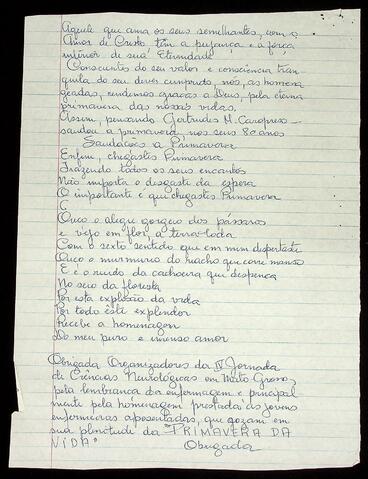 Aquele que ama os seus semelhantes, com o
Amor de Cristo têm a pujança e a força
interior de sua Eternidade
Conscientes do seu valor e consciencia tran-
quila do seu dever cumprido, nós, as homena
geadas, rendemos graças a Deus, pela eterna
primavera das nossas vidas.
Assim, pensando Gertrudes M.
saudou a primavera nos seus 80 anos
Saudações a Primavera
Enfim, chegastes Primavera
Trazendo todos os seus encantos
Não importa o desgaste da espera
O importante é que chegastes Primavera
E
Ouço o alegre gorgeio dos pássaros
e vejo em flor, a terra toda
Com o sexto sentido que em mim despertaste
Ouço o murmurio do riacho que corre manso
E é o ruido da cachoeira que despenca
No seio da floresta
Por esta explosão da vida
Por todo êste explendor
Recebe a homenagem
Do meu puro e imenso amor
Obrigada Organizadores da IV Jornada
de Ciências Neurológicas em Mato Grosso,
pela lembrança da enfermagem e principal
mente pela homenagem prestada às jovens
enfermeiras aposentadas, que gozam em
sua plenitude da "PRIMAVERA DA
VIDA"
Obrigada